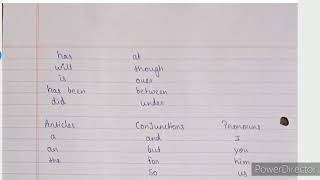 has at
will though
is over
has been between
did under
Articles Conjunctions Pronouns
a and I
an but you
the for him
so us
PowerDirector